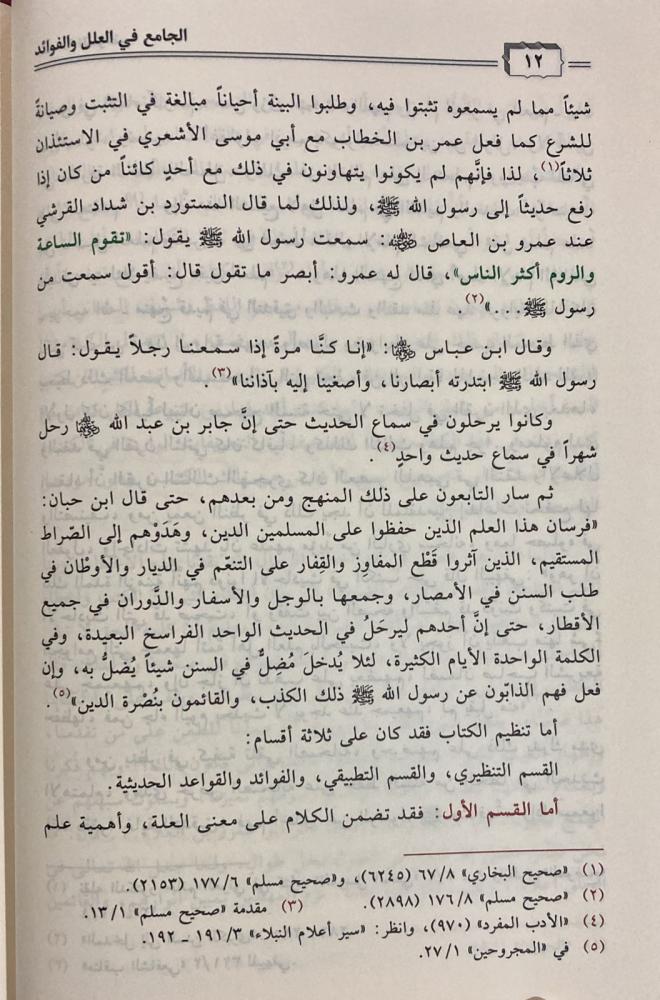 الجامع في العلل والفوائد
١٢
شيئاً مما لم يسمعوه تثبتوا فيه، وطلبوا البينة أحياناً مبالغة في التثبت وصيانةً
للشرع كما فعل عمر بن الخطاب مع أبي موسى الأشعري في الاستئذان
ثلاثاً(١)، لذا فإنَّهم لم يكونوا يتهاونون في ذلك مع أحدٍ كائناً من كان إذا
رفع حديثاً إلى رسول الله ﷺ، ولذلك لما قال المستورد بن شداد القرشي
عند عمرو بن العاص رضي الله عنه: سمعت رسول الله ﷺ يقول: «تقوم الساعة
والروم أكثر الناس»، قال له عمرو: أبصر ما تقول قال: أقول سمعت من
رسول ﷺ...»(٢).
وقال ابن عباس رضي الله عنهما: «إنا كنَّا مرةً إذا سمعنا رجلاً يقول: قال
رسول الله ﷺ ابتدرته أبصارنا، وأصغينا إليه بآذاننا»(٣).
وكانوا يرحلون في سماع الحديث حتى إنَّ جابر بن عبد الله رضي الله عنهما رحل
شهراً في سماع حديث واحدٍ(٤).
ثم سار التابعون على ذلك المنهج ومن بعدهم، حتى قال ابن حبان:
«فرسان هذا العلم الذين حفظوا على المسلمين الدين، وهَدَوْهم إلى الصّراط
المستقيم، الذين آثروا قَطْع المفاوِز والقِفار على التنعّم في الديار والأوطْان في
طلب السنن في الأمصار، وجمعها بالوجل والأسفار والدَّوران في جميع
الأقطار، حتى إنَّ أحدهم ليرحَلُ في الحديث الواحد الفراسخ البعيدة، وفي
الكلمة الواحدة الأيام الكثيرة، لئلا يُدخلَ مُضِلٌّ في السنن شيئاً يُضلُّ به، وإن
فعل فهم الذابّون عن رسول الله ﷺ ذلك الكذب، والقائمون بنُصْرة الدين»(٥).
أما تنظيم الكتاب فقد كان على ثلاثة أقسام:
القسم التنظيري، والقسم التطبيقي، والفوائد والقواعد الحديثية.
أما القسم الأول: فقد تضمن الكلام على معنى العلة، وأهمية علم
(١) «صحيح البخاري» ٦٧/٨ (٦٢٤٥)، و«صحيح مسلم» ١٧٧/٦ (٢١٥٣).
(٢) «صحيح مسلم» ١٧٦/٨ (٢٨٩٨). (٣) مقدمة «صحيح مسلم» ١٣/١.
(٤) «الأدب المفرد» (٩٧٠)، وانظر: «سير أعلام النبلاء» ١٩١/٣ ـ ١٩٢.
(٥) في «المجروحين» ٢٧/١.